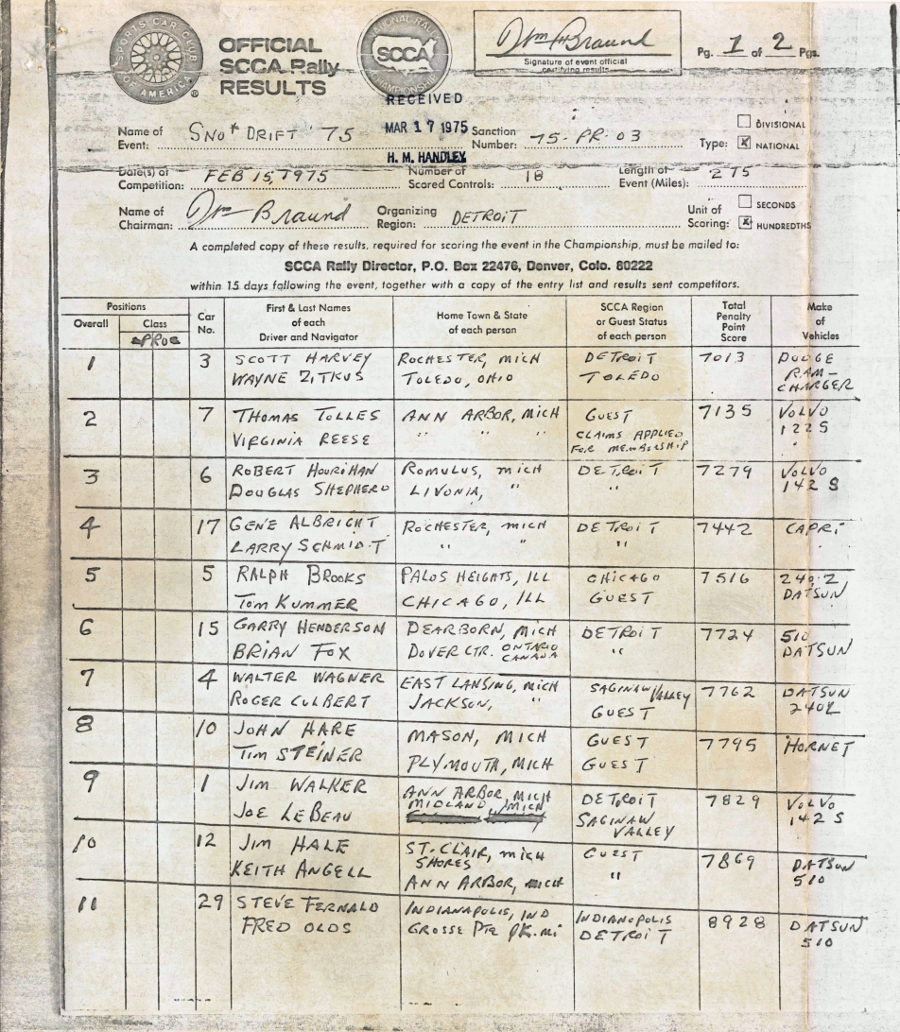 SPORTS CAR CLUB OF AMERICA
OFFICIAL
SCCA Rally
RESULTS
NATIONAL RALLY
SCCA
CHAMPIONSHIP
Wm Braund
Signature of event official
certifying results
Pg. 1 of 2 Pgs.
RECEIVED
MAR 17 1975
H. M. HANDLEY
Name of Event: SNO* DRIFT '75
Sanction Number: 75-PR-03
Type: DIVISIONAL
X NATIONAL
Date(s) of Competition: FEB 15, 1975
Number of Scored Controls: 18
Length of Event (Miles): 275
Name of Chairman: Wm Braund
Organizing Region: DETROIT
Unit of Scoring: SECONDS
X HUNDREDTHS
A completed copy of these results, required for scoring the event in the Championship, must be mailed to:
SCCA Rally Director, P.O. Box 22476, Denver, Colo. 80222
within 15 days following the event, together with a copy of the entry list and results sent competitors.
Positions
Overall
Class
PRO
Car No.
First & Last Names of each Driver and Navigator
Home Town & State of each person
SCCA Region or Guest Status of each person
Total Penalty Point Score
Make of Vehicles
1 3 SCOTT HARVEY ROCHESTER, MICH DETROIT 7013 DODGE
WAYNE ZITKUS TOLEDO, OHIO TOLEDO RAM-
CHARGER
2 7 THOMAS TOLLES ANN ARBOR, MICH GUEST 7135 VOLVO
VIRGINIA REESE " " " CLAIMS APPLIED 122S
FOR MEMBERSHIP "
3 6 ROBERT HOURIHAN ROMULUS, MICH DETROIT 7279 VOLVO
DOUGLAS SHEPHERD LIVONIA, " " 142 S
4 17 GENE ALBRIGHT ROCHESTER, MICH DETROIT 7442 CAPRI
LARRY SCHMIDT " " "
5 5 RALPH BROOKS PALOS HEIGHTS, ILL CHICAGO 7516 240-Z
TOM KUMMER CHICAGO, ILL GUEST DATSUN
6 15 GARRY HENDERSON DEARBORN, MICH DETROIT 7724 510
BRIAN FOX DOVER CTR. ONTARIO CANADA " DATSUN
7 4 WALTER WAGNER EAST LANSING, MICH SAGINAW VALLEY 7762 DATSUN
ROGER CULBERT JACKSON, " GUEST 240Z
8 10 JOHN HARE MASON, MICH GUEST 7795 HORNET
TIM STEINER PLYMOUTH, MICH GUEST
9 1 JIM WALKER ANN ARBOR, MICH DETROIT 7829 VOLVO
JOE LEBEAU MIDLAND, MICH SAGINAW VALLEY 142 S
10 12 JIM HALE ST. CLAIR SHORES, MICH GUEST 7869 DATSUN
KEITH ANGELL ANN ARBOR, MICH " 510
11 29 STEVE FERNALD INDIANAPOLIS, IND INDIANAPOLIS 8928 DATSUN
FRED OLDS GROSSE PTE PK. MI DETROIT 510